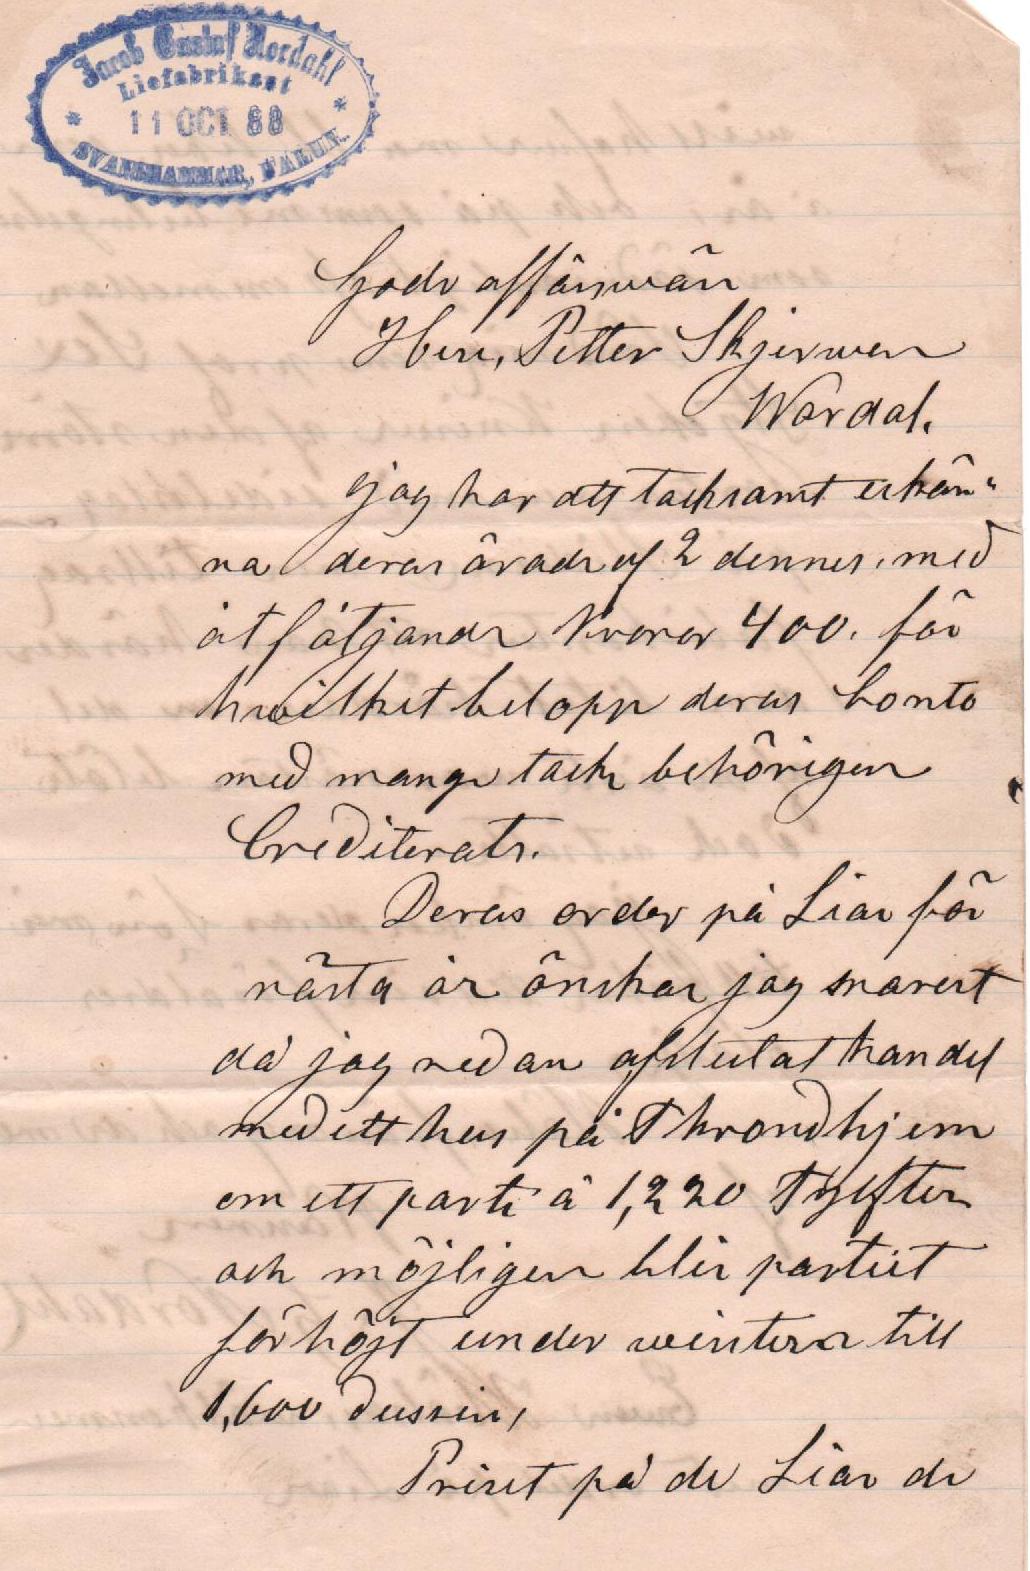 Jacob Gustaf Nordahl
Liefabrikant
11 OCT 88
SVANSHAMMAR, FALUN.
Gode affärsvän
Herr, Petter Skjerwen
Wardal.
jag har att tacksamt erkän"
na deras ärade af 2 dennes, med
åtföljande Kronor 400. för
hwilket belopp deras Conto
med mange tack behörigen
Crediterats.
Deras order på Liar för
nästa år önskar jag snarest
då jag redan afslutat handel
med ett hus på Throndhjem
om ett parti à 1,220 Tylfter
och möjligen blir partiet
förhöjt under wintern till
1,600 dussin,
Priset på de Liar de